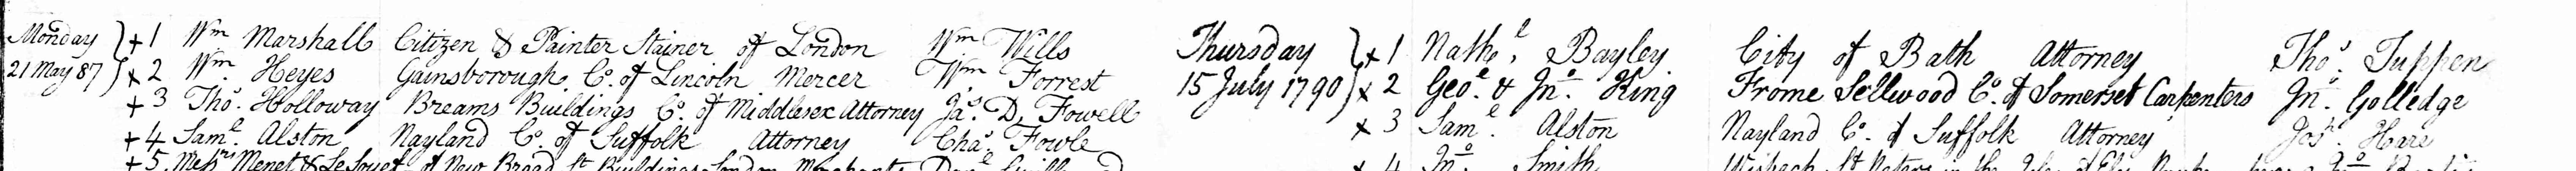 Monday } + 1 Wm Marshall Citizen & Painter Stainer of London Wm Wills
21 May 87 } x 2 Wm. Heyes Gainsborough Co. of Lincoln Mercer Wm Forrest
+ 3 Thos. Holloway Breams Buildings Co. of Middlesex Attorney Jas. D. Fowell
+ 4 Saml. Alston Nayland Co. of Suffolk Attorney Chas. Fowle
+ 5 Messrs Menet & of New Broad St Buildings London Merchants
Thursday } x 1 Nathl. Bayley City of Bath Attorney Thos. Tuppen
15 July 1790 } x 2 Geo. & Jno. King Frome Sellwood Co. of Somerset Carpenters Jno. Golledge
x 3 Saml. Alston Nayland Co. of Suffolk Attorney Jos. Hare
x 4 Jno. Smith Wisbech St Peters in the Isle of Ely